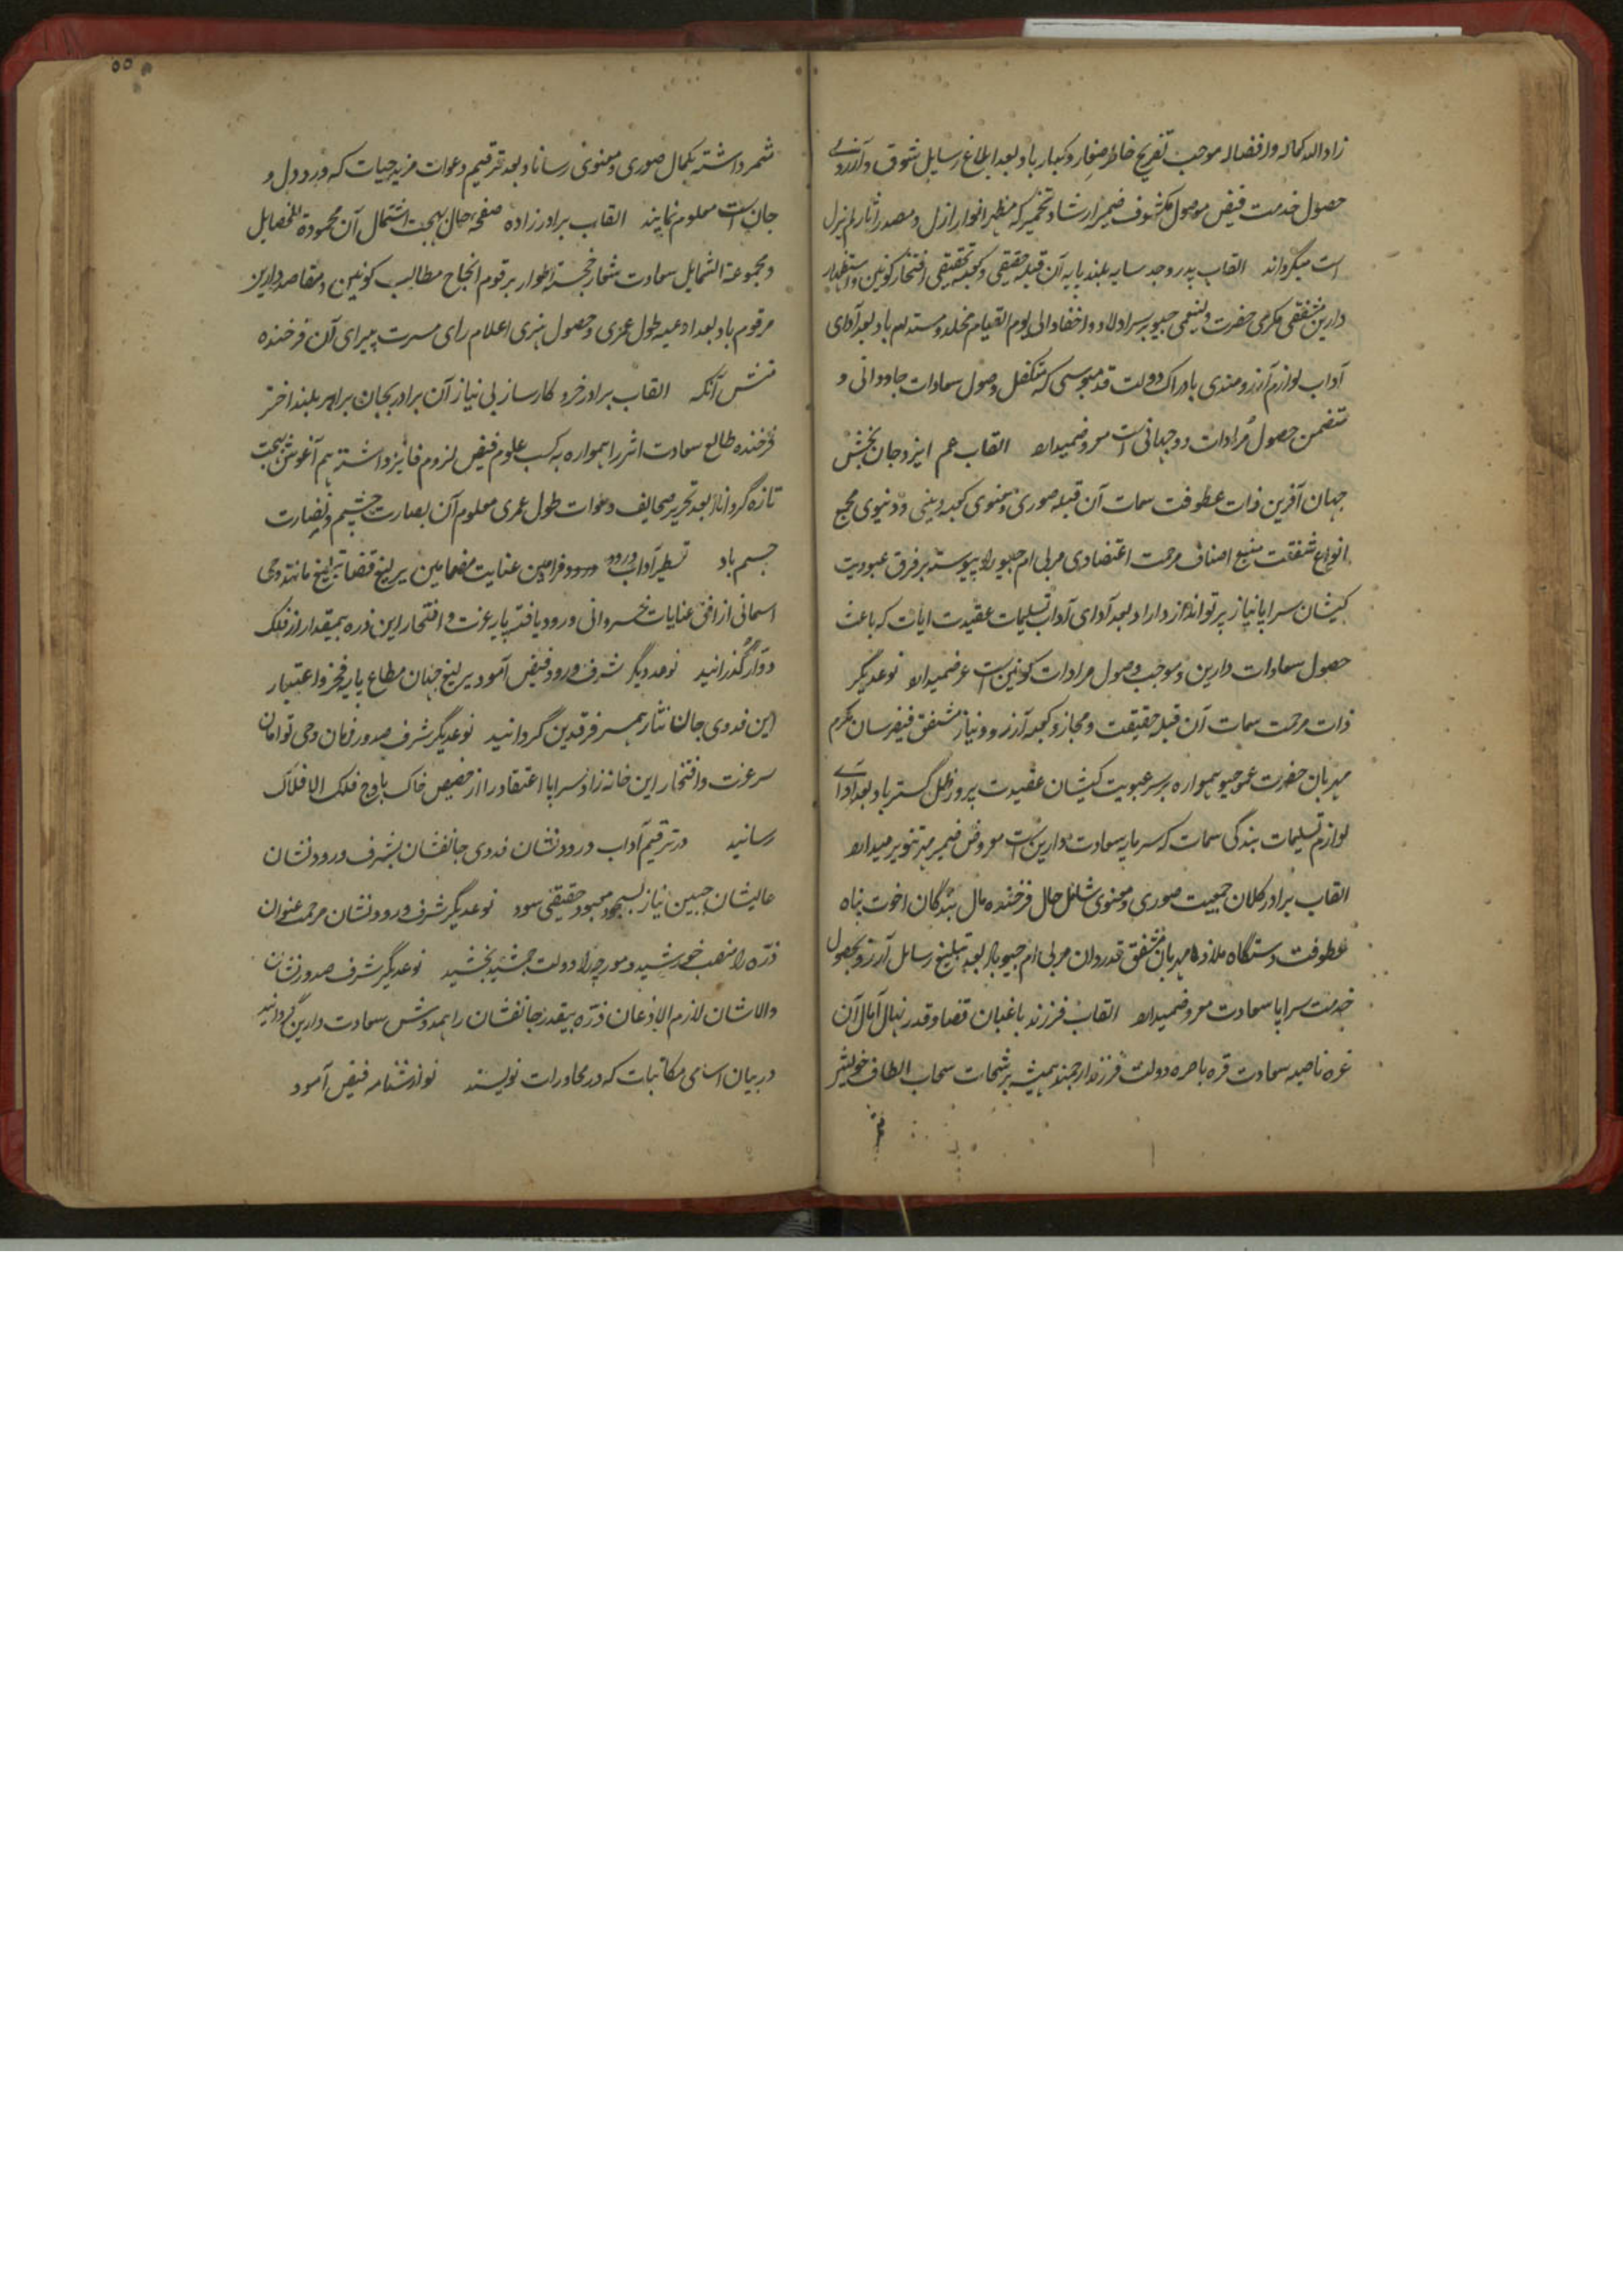 زاد الله کماله و افضاله موجب تفریح خاطر صغار و کبار باد بعد ابلاغ رسایل شوق و آرزوی
حصول خدمت فیض موصول مکشوف ضمیر ارشاد تخمیر که مظهر انوار ازل و مصدر آثار لم یزل
است میگرداند القاب پدر و جد سایه بلند پایه آن قبله حقیقی و کعبه تحقیقی افتخار کونین و استظهار
دارین مشفقی مکرمی حضرت ولینعمی جیو بر سر اولاد و احفاد الی یوم القیام مخلد و مستدام باد بعد ادای
آداب لوازم آرزومندی بادراک دولت قدمبوسی که متکفل وصول سعادات جاودانی و
متضمن حصول مرادات دوجهانی است معروضمیدارد القاب عم ایزد جان بخش
جهان آفرین ذات عطوفت سمات آن قبله صوری و معنوی کعبه دینی و دنیوی مجمع
انواع شفقت منبع اصناف مرحمت اعتضادی مربی ام جیو را پیوسته بر فرق عبودیت
کیشان سراپا نیاز پرتو انداز داراد بعد آدای آداب تسلیمات عقیدت ایات که باعث
حصول سعادات دارین و موجب وصول مرادات کونین است عرضمیدارد نوعدیگر
ذات مرحمت سمات آن قبله حقیقت و مجاز و کعبه آرزو و نیاز مشفق فیضرسان مکرم
مهربان حضرت عموجیو همواره بر سر عبودیت کیشان عقیدت پرور ظل گستر باد بعد ادای
لوازم تسلیمات بندگی سمات که سرمایه سعادت دارین است معروض ضمیر مهر تنویر میدارد
القاب برادر کلان جمعیت صوری و معنوی شامل حال فرخنده مال بندگان اخوت پناه
عطوفت دستگاه ملاذ مهربان مشفق قدردان مربی ام جیو باد بعد تبلیغ رسایل آرزو بحصول
خدمت سراپا سعادت معروضمیدارد القاب فرزند باغبان قضا و قدر نهال آمال آن
غره ناصیه سعادت قره باصره دولت فرزند ارجمند همیشه برشحات سحاب الطاف خویش
۵۵
ثمر داشته بکمال صوری و معنوی رساناد بعد ترقیم دعوات مزید حیات که ورد دل و
جان است معلوم نمایند القاب برادرزاده صفحه حال بهجت اشتمال آن محمودة الخصایل
و مجموعة الشمایل سعادت شعار خجسته اطوار برقوم انجاح مطالب کونین و مقاصد دارین
مرقوم باد بعد ادعیه طول عمری و حصول هنری اعلام رای مسرت پیرای آن فرخنده
منش آنکه القاب برادر خرد کارساز بی نیاز آن برادر بجان برابر بلند اختر
فرخنده طالع سعادت اثر را همواره به کسب علوم فیض لزوم فایز داشته هم آغوش بهجت
تازه گرداناد بعد تحریر صحایف دعوات طول عمری معلوم آن بصارت چشم و نضارت
جسم باد تسطیر آداب ورود فرامین عنایت مضامین یرلیغ قضا تبلیغ مانند وحی
اسمانی از افق عنایات خسروانی ورود یافته پایه عزت و افتخار این ذره بیمقدار از فلک
دوار گذرانید نوعدیگر شرف ورود فیض آمود یرلیغ جهان مطاع پایه فخر و اعتبار
این فدوی جان نثار همسر فرقدین گردانید نوعدیگر شرف صدور فرمان وحی توامان
سر عزت و افتخار این خانه زاد سراپا اعتقاد را از حضیض خاک باوج فلک الافلاک
رسانید در ترقیم آداب ورود نشان فدوی جانفشان بشرف ورود نشان
عالیشان جبین نیاز بسجود معبود حقیقی سود نوعدیگر شرف ورود نشان مرحمت عنوان
ذره را منصب خورشید و مورچه را دولت جمشید بخشید نوعدیگر شرف صدور نشان
والاشان لازم الاذعان ذره بیقدر جانفشان را همدوش سعادت دارین گردانید
در بیان اسامی مکاتبات که در محاورات نویسند نوازشنامه فیض آمود